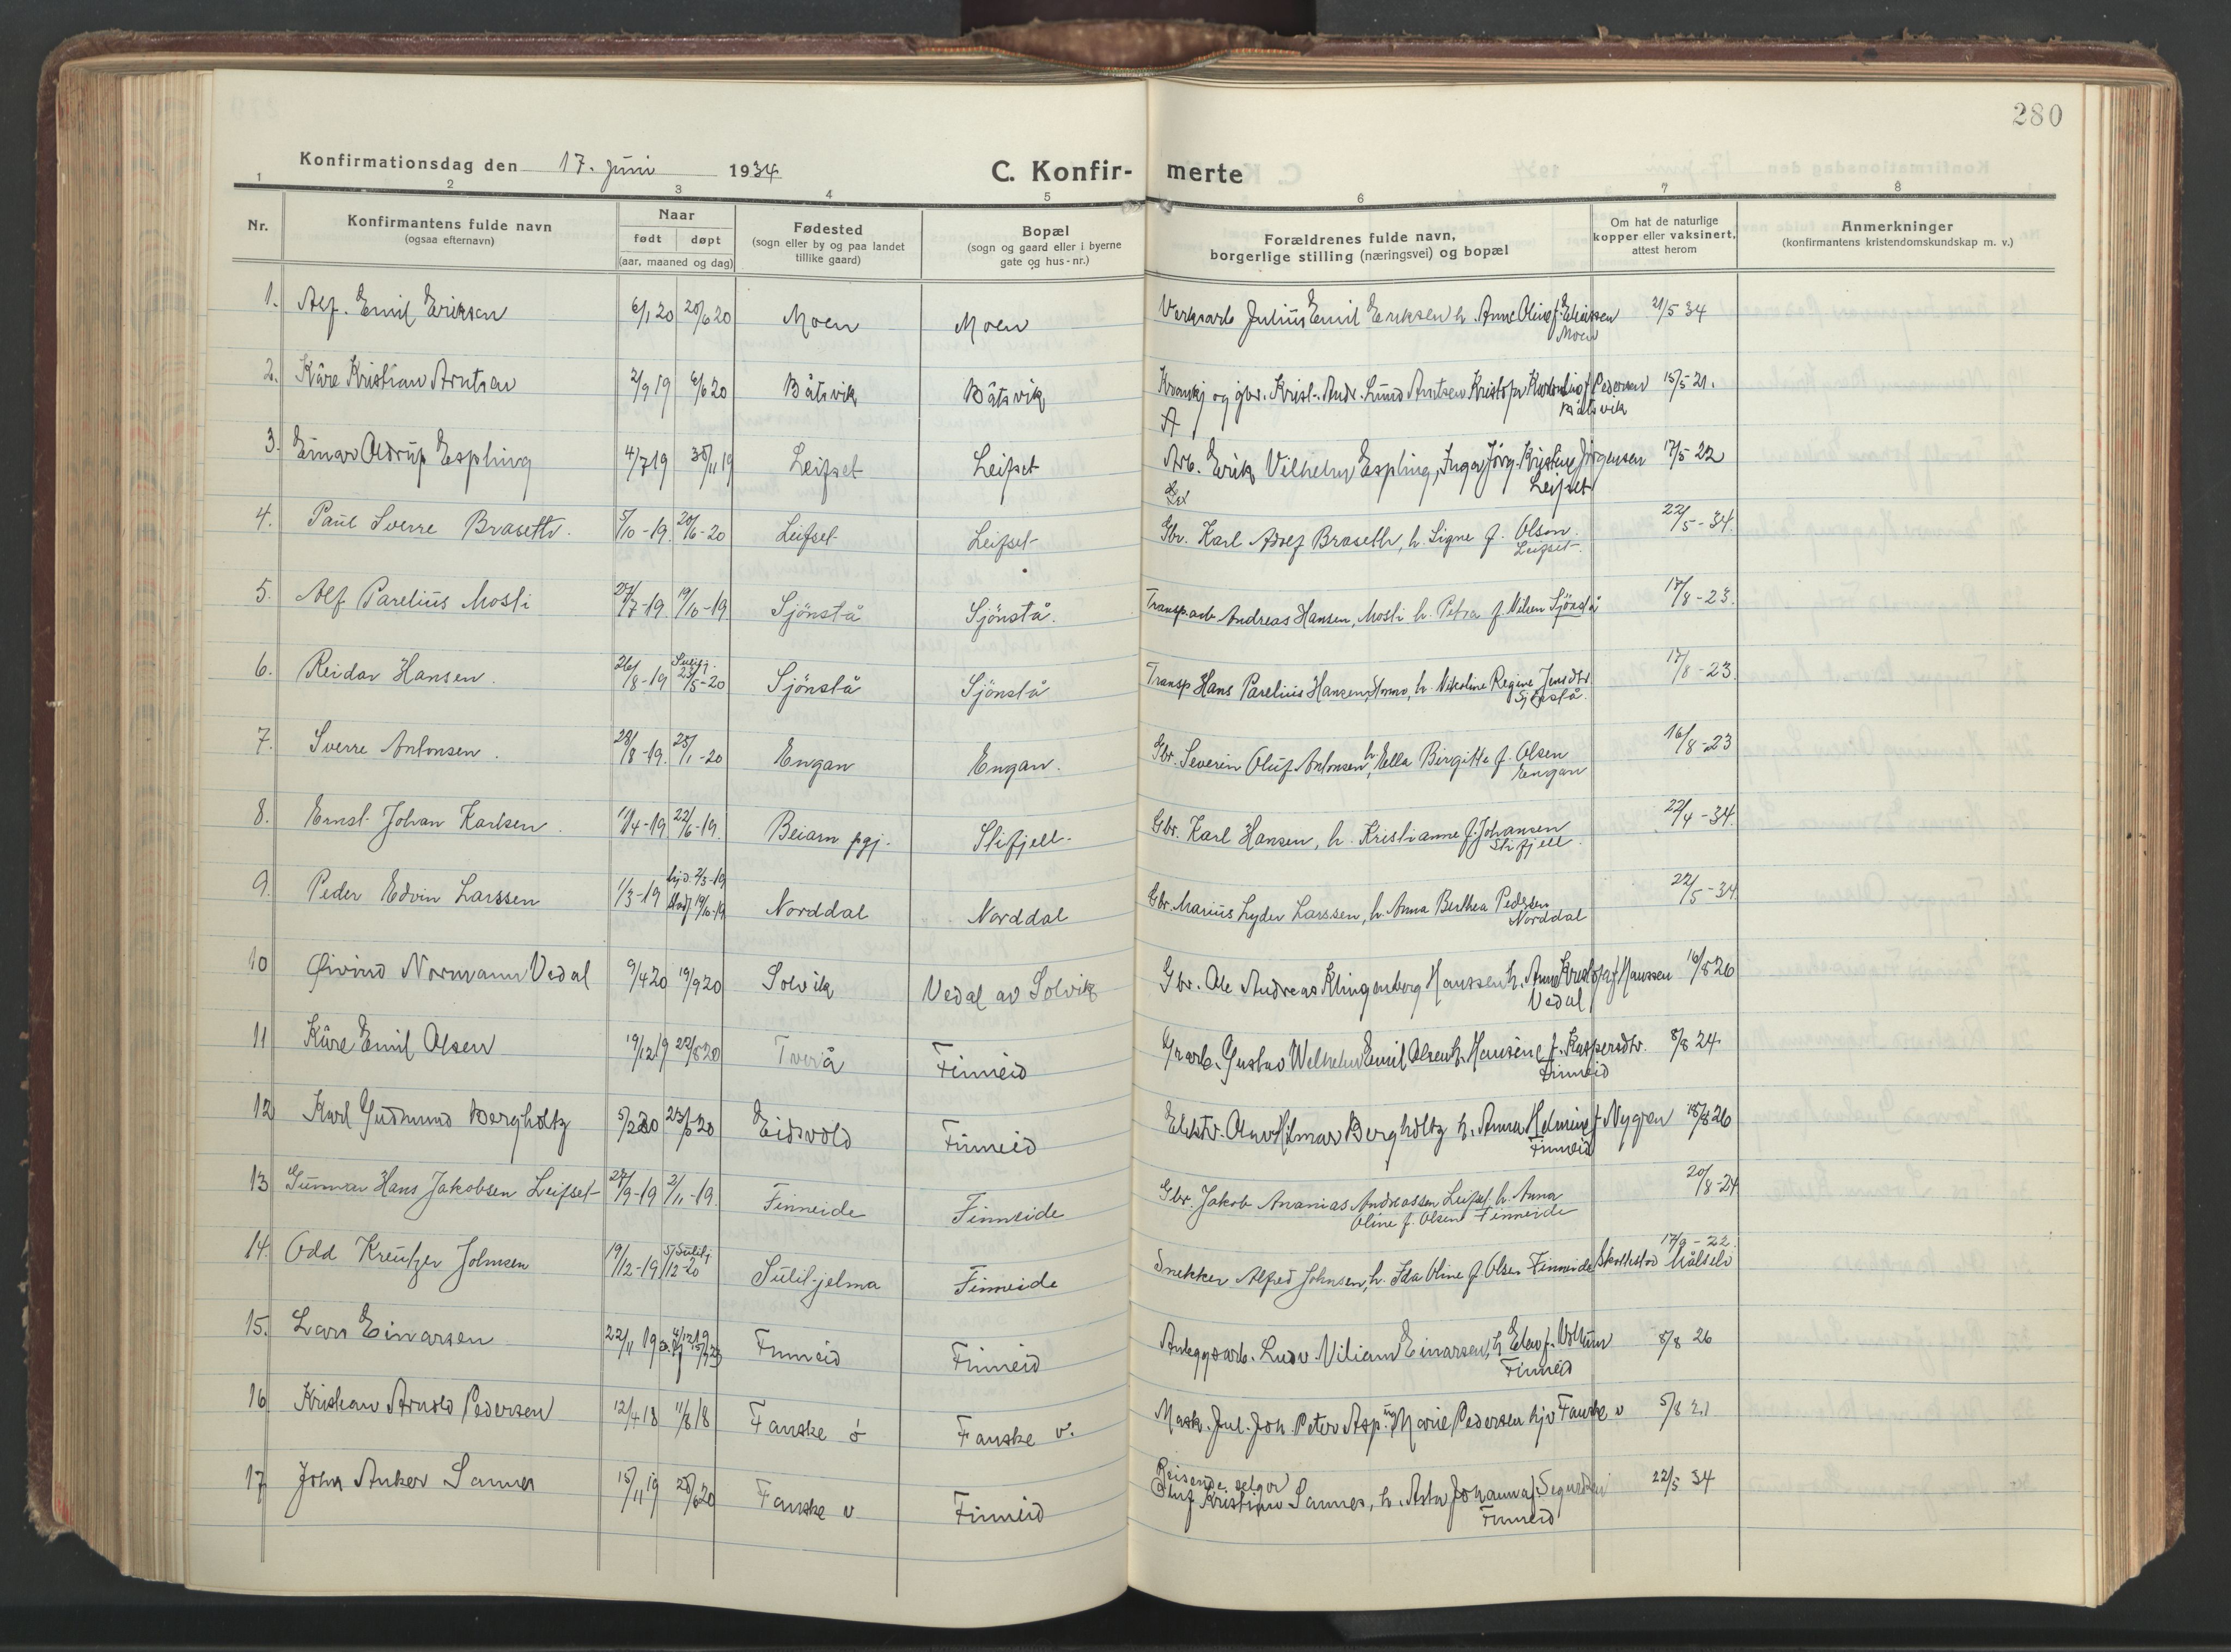 280
Konfirmationsdag den 17. juni 1934
C. Konfir- merte
1 2 3 4 5 6 7 8
Nr.
Konfirmantens fulde navn
(ogsaa efternavn)
Naar
født døpt
(aar, maaned og dag)
Fødested
(sogn eller by og paa landet
tillike gaard)
Bopæl
(sogn og gaard eller i byerne
gate og hus-nr.)
Forældrenes fulde navn,
borgerlige stilling (næringsvei) og bopæl
Om hat de naturlige
kopper eller vaksinert,
attest herom
Anmerkninger
(konfirmantens kristendomskundskap m. v.)
1. Alf. Emil Eriksen 6/1 20 20/6 20 Moen Moen Verksarb Julius Emil Eriksen h. Anne Oline f. Eliassen 21/5 34
Moen
2. Kåre Kristian Arntsen 2/9 19 6/6 20 Båtsvik Båtsvik og gbr. Krist. Andr. Lund Arntsen f. Pedersen 15/5 21.
Båtsvik
3. Einar Oldrup Espling 4/7 19 30/11 19 Leifset Leifset Arb. Erik Vilhelm Espling, Inga Jörg. Kristine Jörgensen 17/5 22
Leifset
4. Paul Sverre Braseth. 5/10-19. 20/6-20 Leifset Leifset Gbr. Karl Adolf Braseth, h. Signe f. Olsen. 22/5-34.
Leifset
5. Alf Parelius Mosli 27/7-19. 19/10-19 Sjönstå Sjönstå. Transp.arb Andreas Hansen, Mosli h. Petra f. Nilsen Sjönstå 17/8-23.
6. Reidar Hansen. 26/8-19 Sulitj. 23/5-20 Sjönstå Sjönstå Transp Hans Parelius Hansen, h. Nikoline Regine Jensdtr 17/8-23.
Sjönstå.
7. Sverre Antonsen. 28/8-19. 25/1-20 Engan Engan. Gbr. Severin Oluf Antonsen, h. Ella Birgitte f. Olsen 16/8-23
Engan
8. Ernst Johan Karlsen. 11/4-19 22/6-19. Beiarn pgj. Stifjell. Gbr. Karl Hansen, h. Kristianne f. Johansen 22/4-34.
Stifjell.
9. Peder Edvin Larssen 1/3-19 hjd. 2/3-19 Stadf 19/10-19 Norddal Norddal Gbr. Marius Lyder Larssen, h. Anna Berthea Pedersen 22/5-34.
Norddal
10 Øivind Normann Vedal 9/4 20 19/9 20 Solvik Vedal av Solvik Gbr. Ole Andreas Klingenberg Hanssen h. Anne f. Hanssen 16/8 26
Vedal
11 Kåre Emil Olsen 19/12 19 22/8 20 Tverå Finneid Grarb. Gustav Welhelm Emil Olsen h. Hansine f. Kaspersdtr. 8/8 24
Finneid
12 Karl Gudmund Bergholtz 5/2 20 23/5 20 Eidsvold Finneid Elektr. Olav Hilmar Bergholtz h. Anna Helmine f. Nygren 18/8 26
Finneid
13 Gunnar Hans Jakobsen Leifset 27/9-19 2/11-19. Finneide Finneide Gbr. Jakob Ananias Andreassen Leifset h. Anna 20/8-24
Oline f. Olsen Finneide
14. Odd Kreutzer Johnsen 19/12-19 5/12-20 Sulitj. Sulitjelma Finneide Snekker Alfred Johnsen, h. Ida Oline f. Olsen Finneide 17/9-22.
Målselv
15. Lars Einarsen 22/11 19 4/12 19 Finneid Finneid Anleggsarb. Ludv. Viliam Einarsen, h. 8/8 26
Finneid
16 Kristian Arnold Pedersen 12/4 18 11/8 18 Fauske ö Fauske v. Mask. Jul. Joh. Peter Asp. ug Marie Pedersen hjv Fauske v 5/8 21
17 John Anker Sannes 15/11 19 20/6 20 Fauske v Finneid Reisende selger
Oluf Kristian Sannes, h. Asta Johanna f. Sigurdsen 22/5 34
Finneid